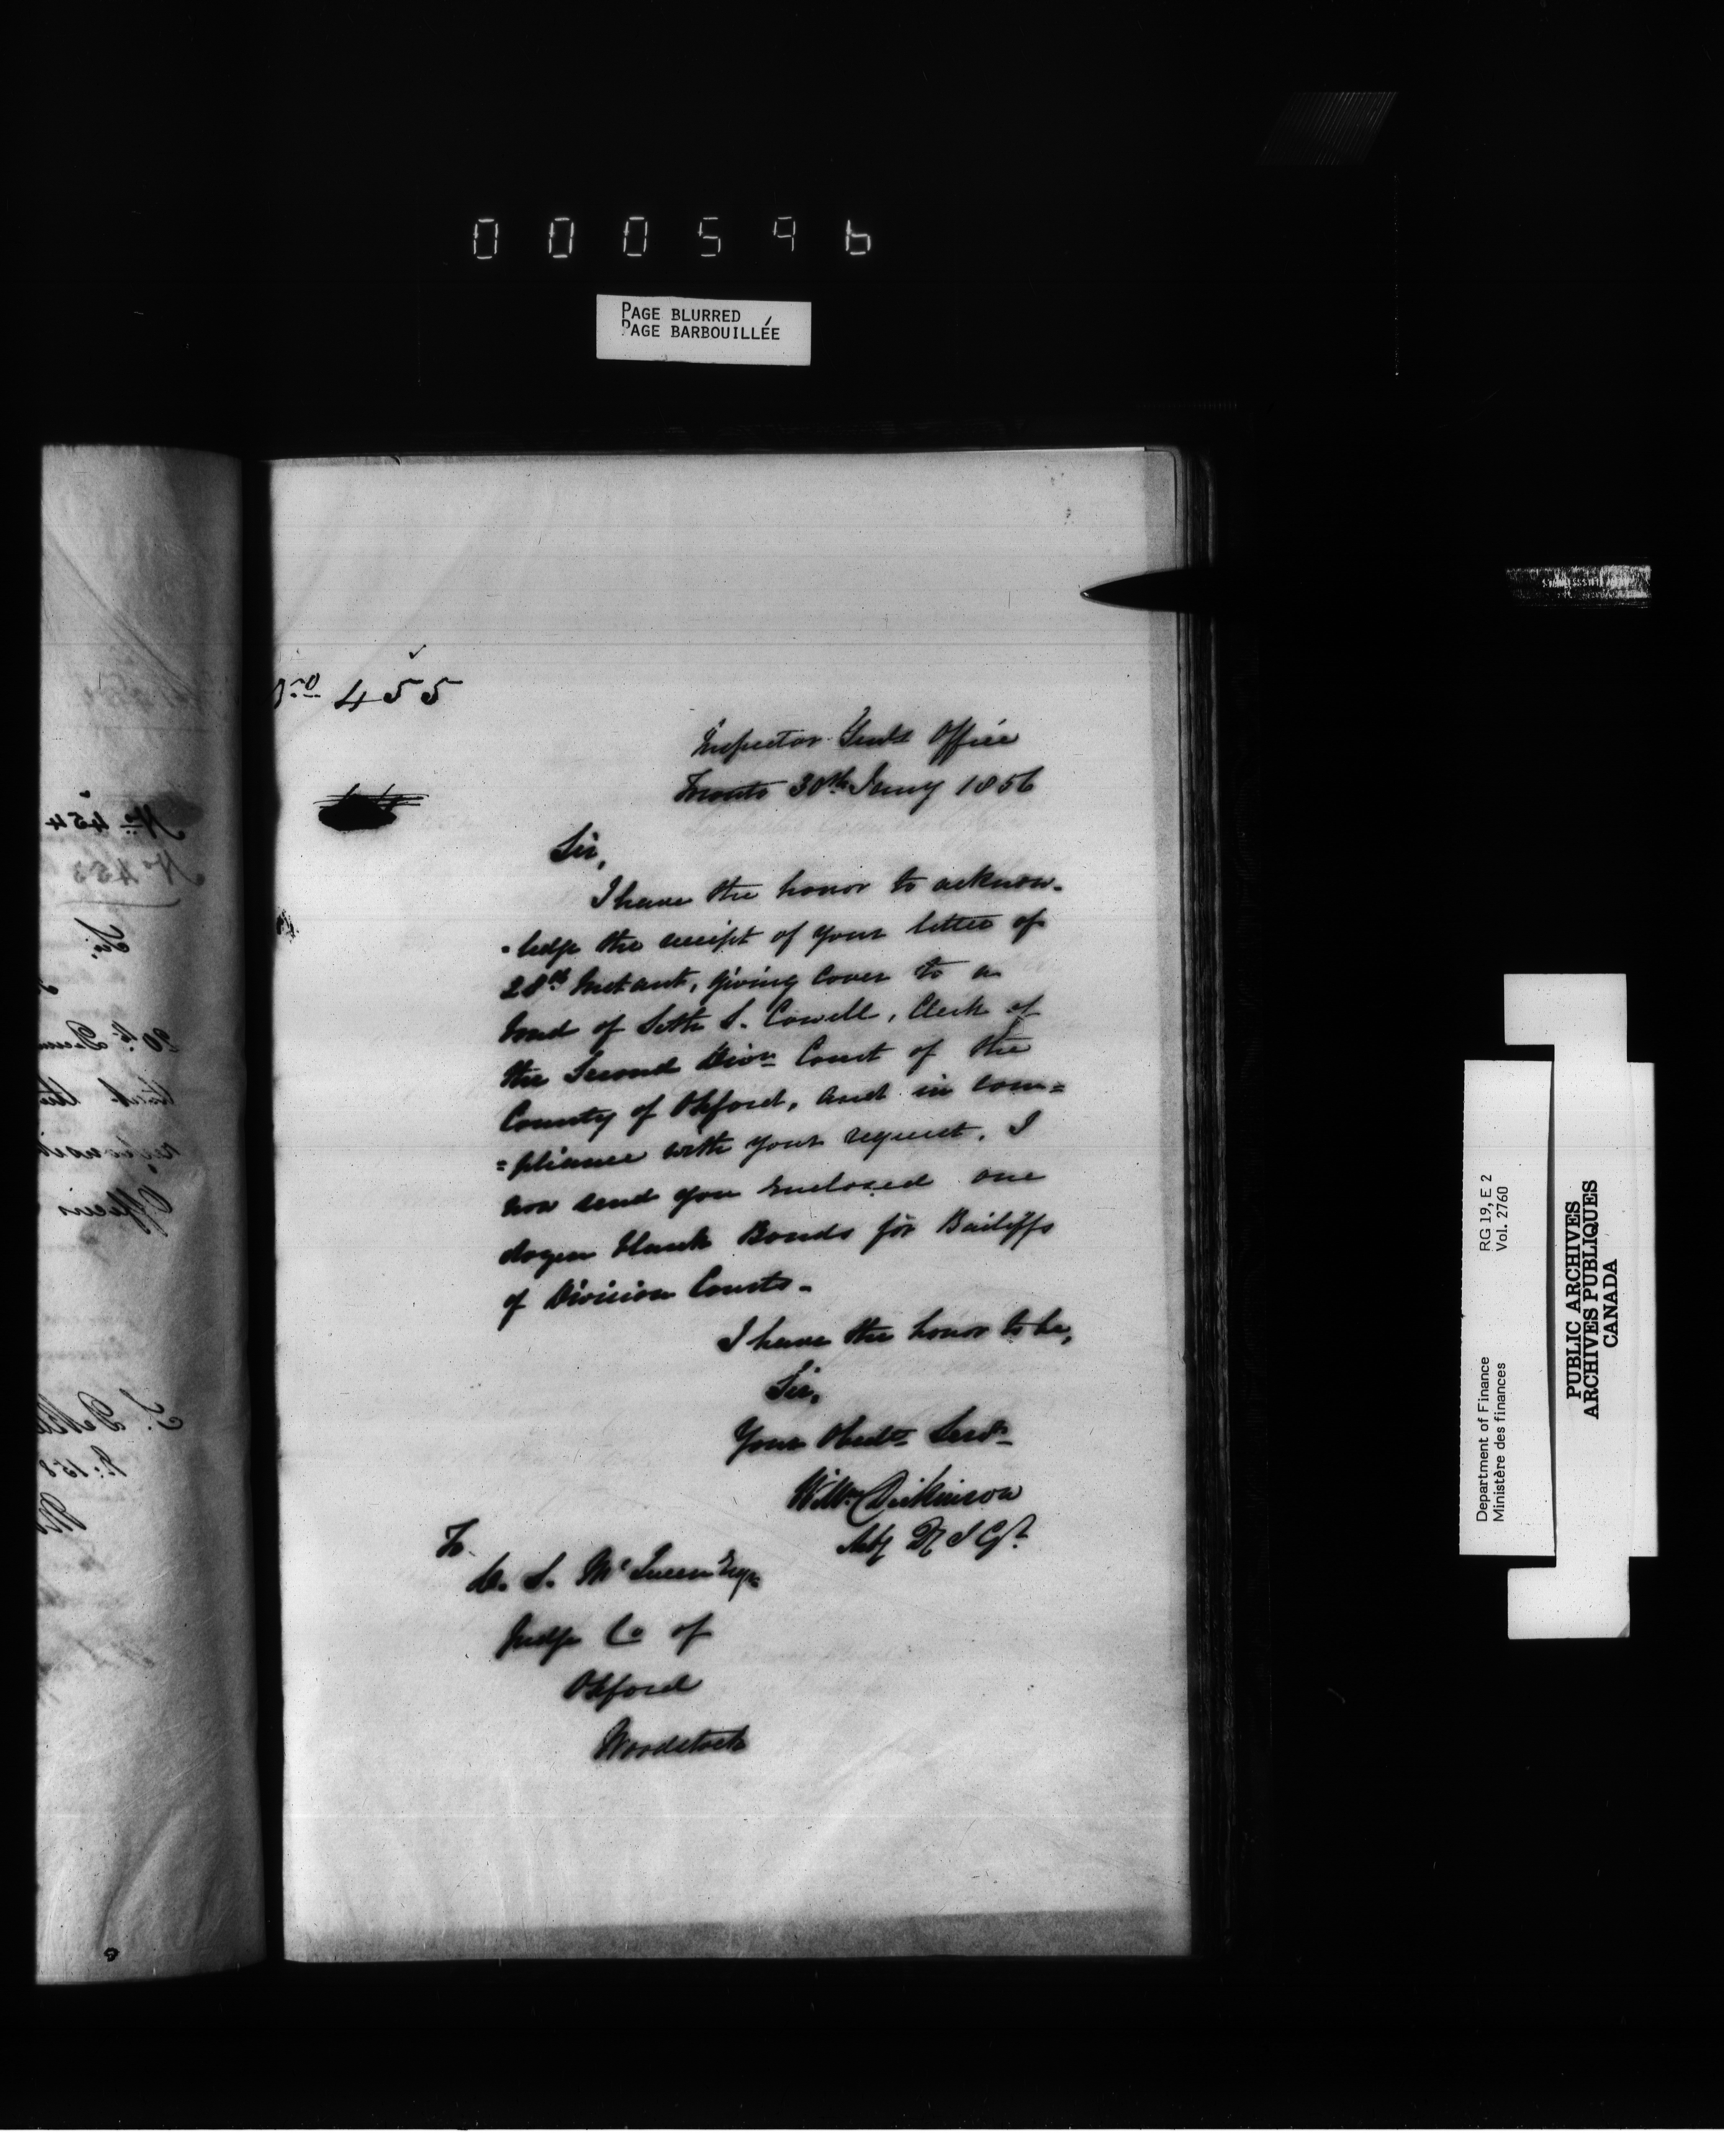 000596
PAGE BLURRED
PAGE BARBOUILLÉE
No 455
Inspector Genls Office
Toronto 30th Jany 1856
Sir,
I have the honor to acknow-
-ledge the receipt of your letter of
28th Instant, giving cover to a
bond of Seth S. Cowell, Clerk of
the Second Divn Court of the
County of Oxford, and in com=
=pliance with your request, I
now send you enclosed one
dozen blank Bonds for Bailiffs
of Division Courts-
I have the honor to be,
Sir,
Your Obedt Servt
Willm Dickinson
Actg D I Gl
To
D. S. McQueen Esqre
Judge Co of
Oxford
Woodstock
No 454
No 453
Sir,
Department of Finance
Ministère des finances
RG 19, E 2
Vol. 2760
PUBLIC ARCHIVES
ARCHIVES PUBLIQUES
CANADA